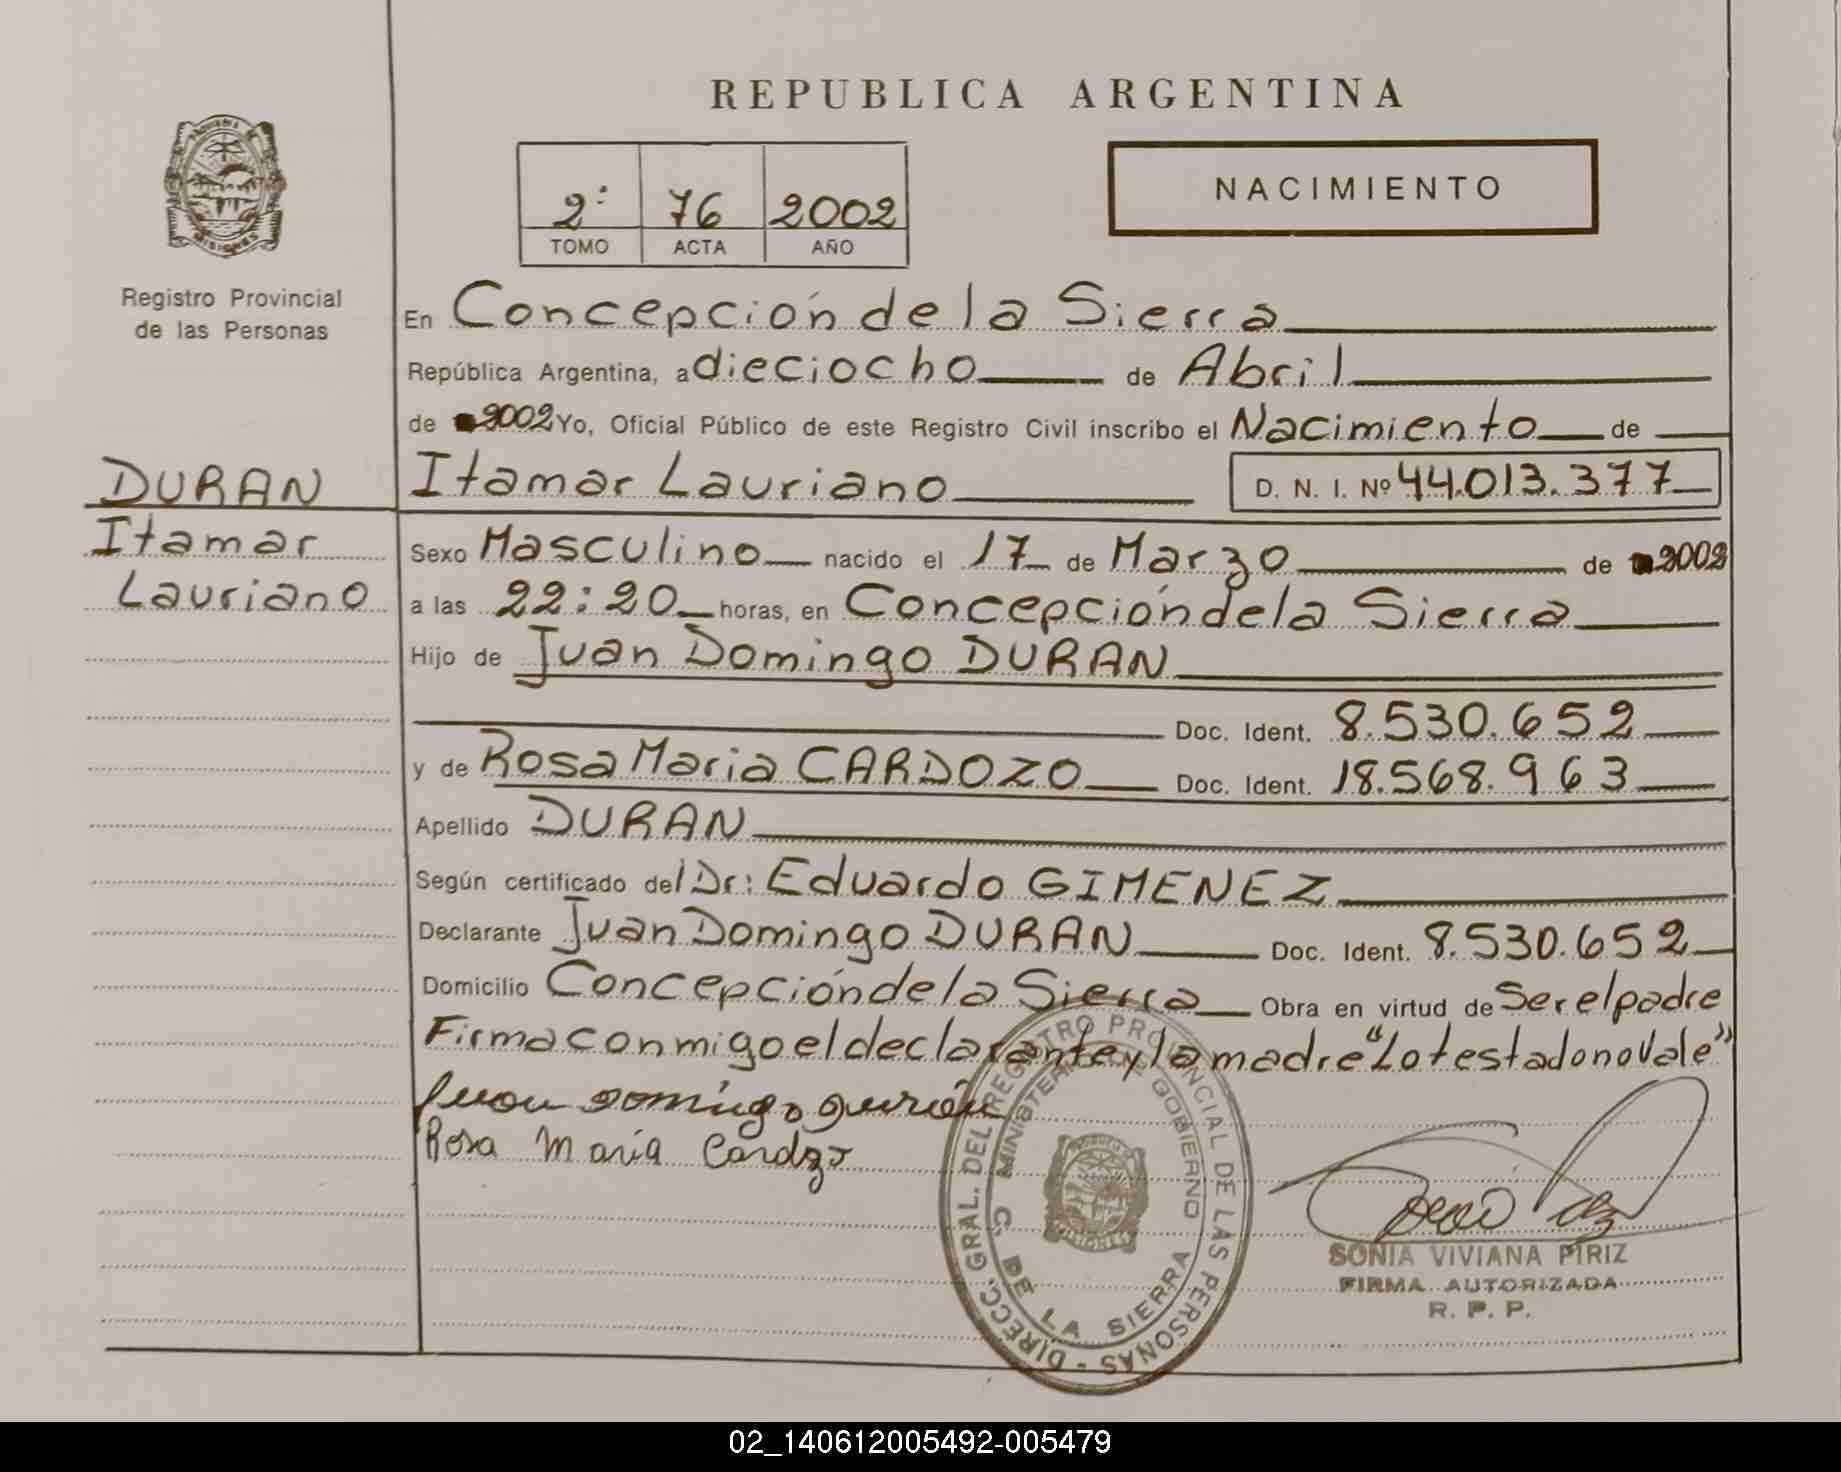 REPUBLICA ARGENTINA
NACIMIENTO
2º 76 2002
TOMO ACTA AÑO
MISIONES
Registro Provincial
de las Personas
En Concepción de la Sierra
República Argentina, a dieciocho de Abril
de 2002 Yo, Oficial Público de este Registro Civil inscribo el Nacimiento de
DURAN
Itamar
Lauriano
Itamar Lauriano D. N. I. Nº 44.013.377
Sexo Masculino nacido el 17 de Marzo de 2002
a las 22:20 horas, en Concepción de la Sierra
Hijo de Juan Domingo DURAN
Doc. Ident. 8.530.652
y de Rosa Maria CARDOZO Doc. Ident. 18.568.963
Apellido DURAN
Según certificado del Dr: Eduardo GIMENEZ
Declarante Juan Domingo DURAN Doc. Ident. 8.530.652
Domicilio Concepción de la Sierra Obra en virtud de Ser el padre
Firma conmigo el declarante y la madre "Lo testado no vale"
Juan Domingo Durán
Rosa Maria Cardozo
DIRECC. GRAL. DEL REGISTRO PROVINCIAL DE LAS PERSONAS -
MINISTERIO DE GOBIERNO
C. DE LA SIERRA
MISIONES
SONIA VIVIANA PIRIZ
FIRMA AUTORIZADA
R. P. P.
02_140612005492-005479